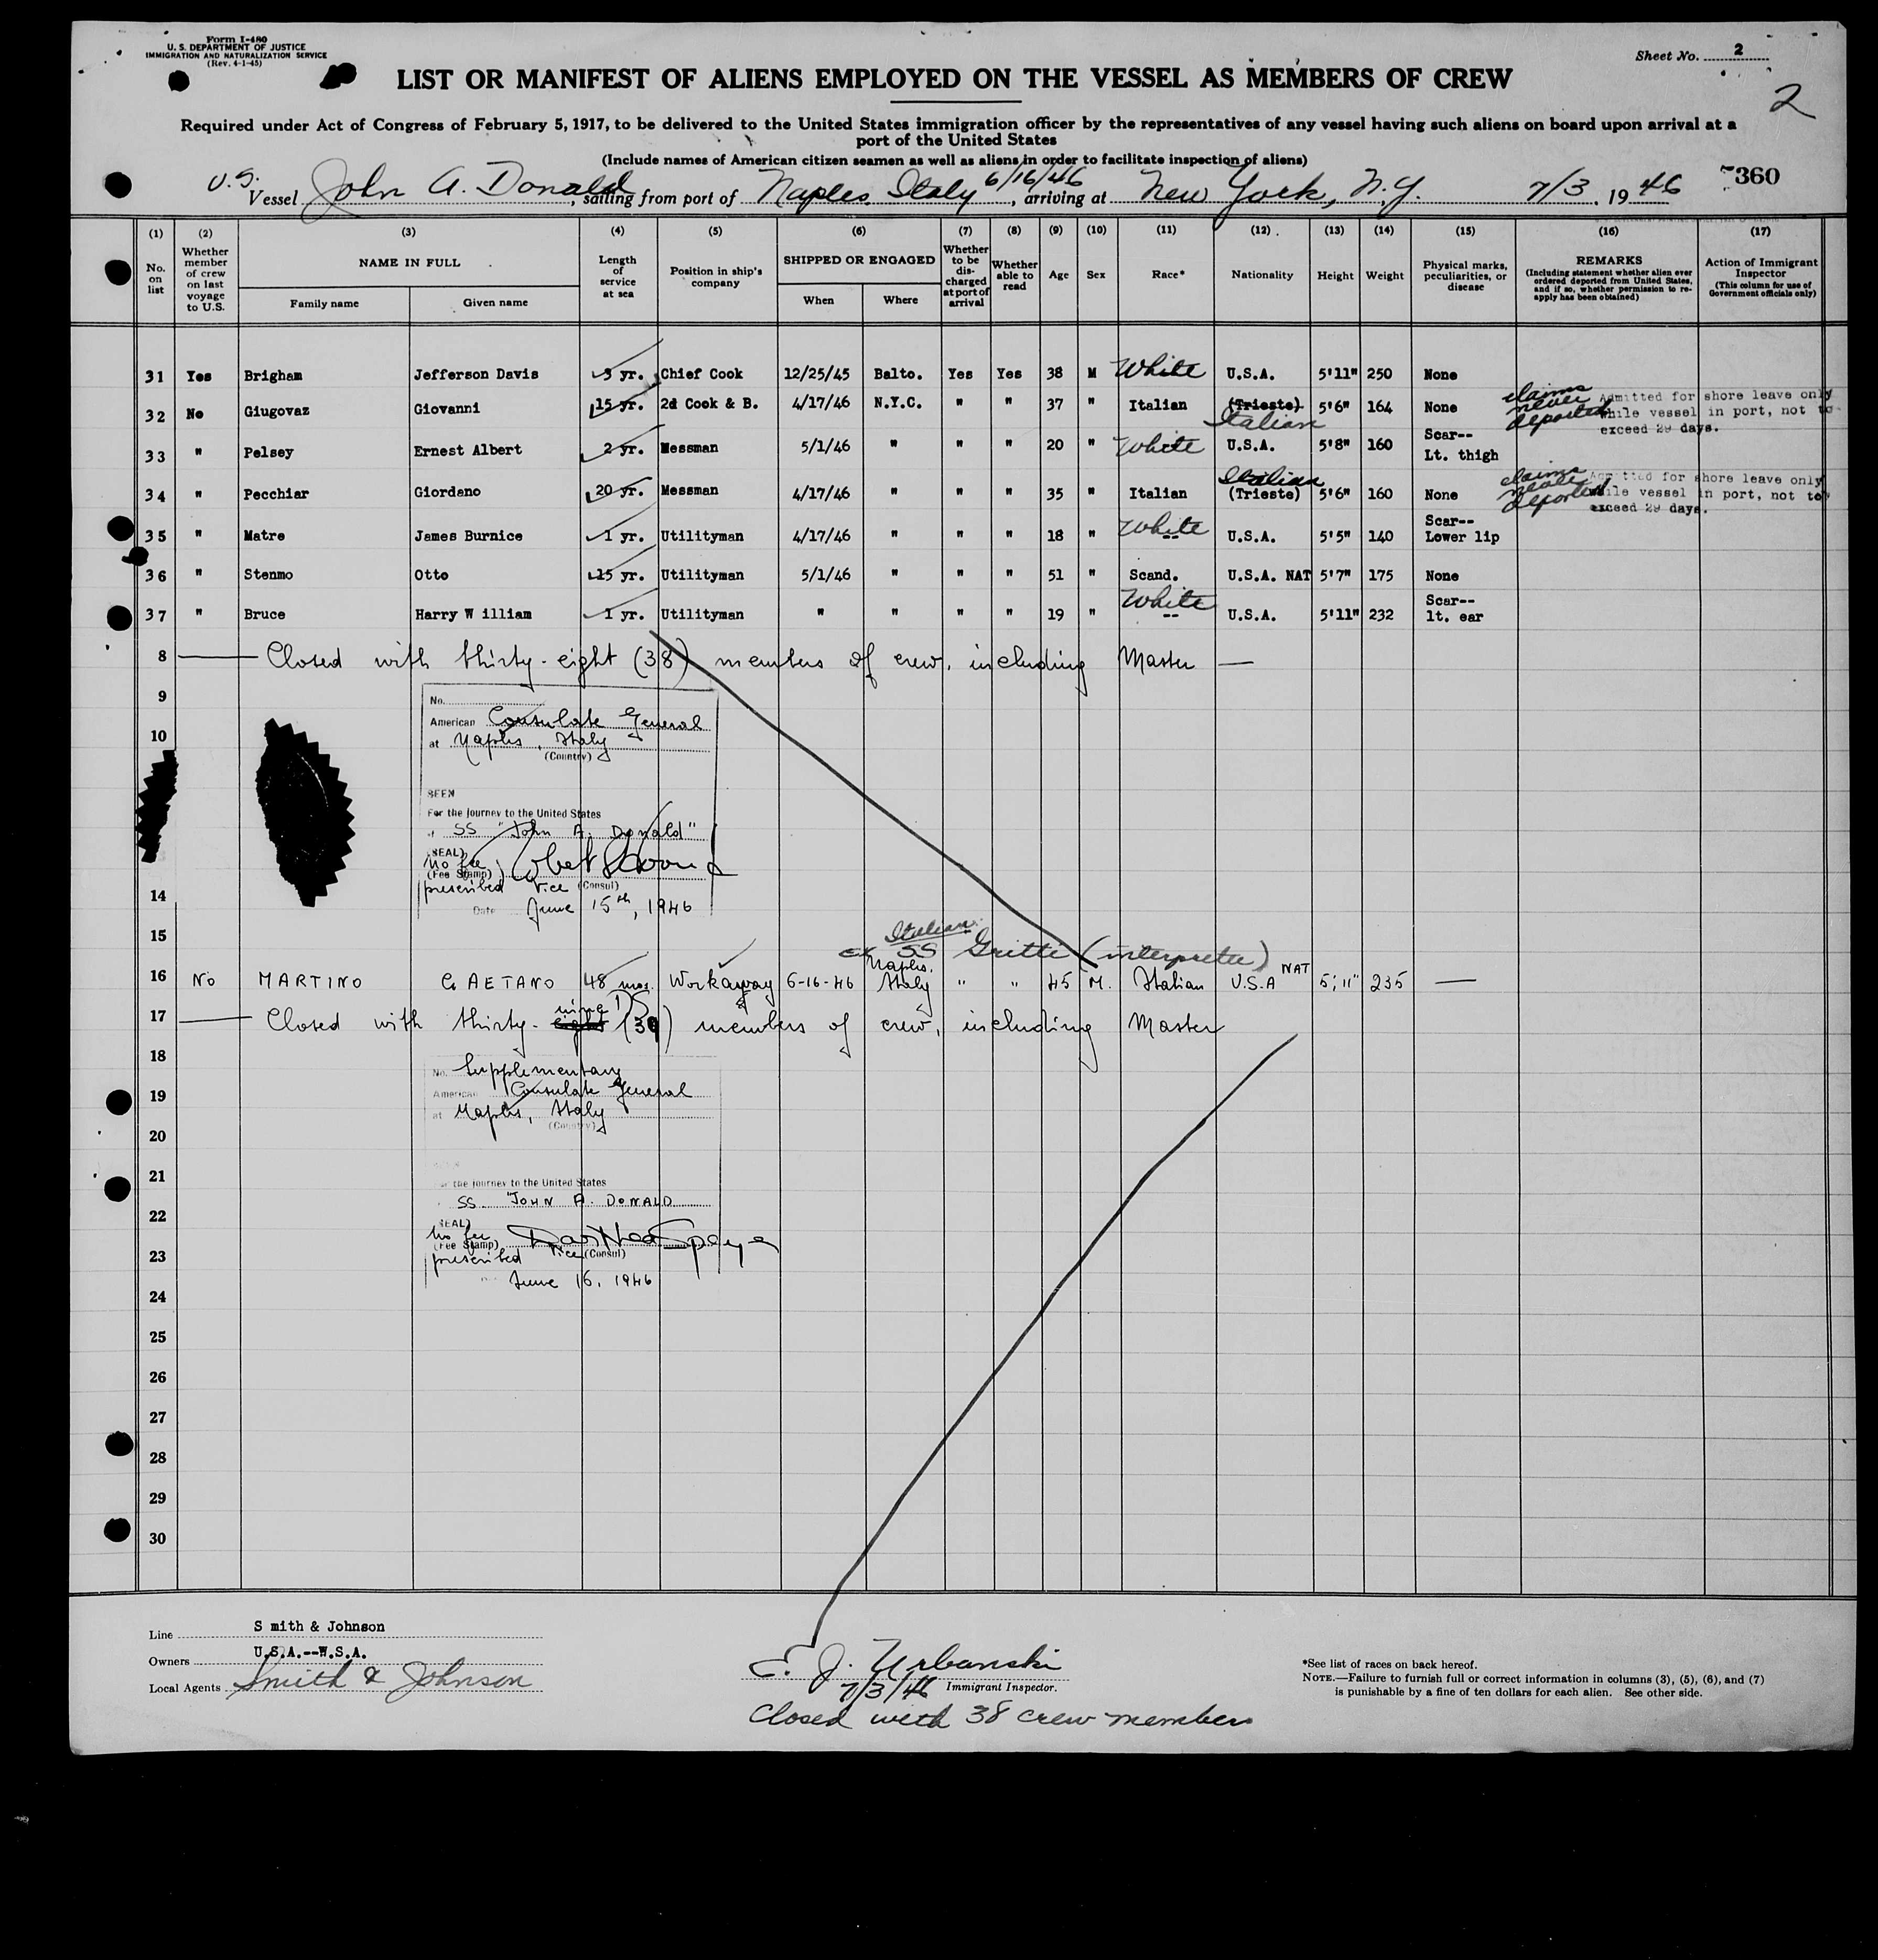 Form I-480
U. S. DEPARTMENT OF JUSTICE
IMMIGRATION AND NATURALIZATION SERVICE
(Rev. 4-1-45)
Sheet No. 2
2
LIST OR MANIFEST OF ALIENS EMPLOYED ON THE VESSEL AS MEMBERS OF CREW
Required under Act of Congress of February 5, 1917, to be delivered to the United States immigration officer by the representatives of any vessel having such aliens on board upon arrival at a
port of the United States
(Include names of American citizen seamen as well as aliens in order to facilitate inspection of aliens)
U.S. Vessel John A. Donald, sailing from port of Naples, Italy 6/16/46, arriving at New York, N.Y. 7/3, 1946 7360
(1) No. on list
(2) Whether member of crew on last voyage to U.S.
(3) NAME IN FULL Family name Given name
(4) Length of service at sea
(5) Position in ship's company
(6) SHIPPED OR ENGAGED When Where
(7) Whether to be discharged at port of arrival
(8) Whether able to read
(9) Age
(10) Sex
(11) Race*
(12) Nationality
(13) Height
(14) Weight
(15) Physical marks, peculiarities, or disease
(16) REMARKS (Including statement whether alien ever ordered deported from United States, and if so, whether permission to reapply has been obtained)
(17) Action of Immigrant Inspector (This column for use of Government officials only)
31 Yes Brigham Jefferson Davis 3 yr. Chief Cook 12/25/45 Balto. Yes Yes 38 M White U.S.A. 5'11" 250 None
32 No Giugovaz Giovanni 15 yr. 2d Cook & B. 4/17/46 N.Y.C. " " 37 " Italian (Trieste) Italian 5'6" 164 None claims never deported Admitted for shore leave only while vessel in port, not to exceed 29 days.
33 " Pelsey Ernest Albert 2 yr. Messman 5/1/46 " " " 20 " White U.S.A. 5'8" 160 Scar-- Lt. thigh
34 " Pecchiar Giordano 20 yr. Messman 4/17/46 " " " 35 " Italian Italian (Trieste) 5'6" 160 None claims never deported Admitted for shore leave only while vessel in port, not to exceed 29 days.
35 " Matre James Burnice 1 yr. Utilityman 4/17/46 " " " 18 " White -- U.S.A. 5'5" 140 Scar-- Lower lip
36 " Stenmo Otto 15 yr. Utilityman 5/1/46 " " " 51 " Scand. U.S.A. NAT 5'7" 175 None
37 " Bruce Harry W illiam 1 yr. Utilityman " " " " 19 " White -- U.S.A. 5'11" 232 Scar-- lt. ear
8 Closed with thirty-eight (38) members of crew, including Master
9
No.
American Consulate General
10
at Naples, Italy
(Country)
SEEN
For the journey to the United States
SS "John A. Donald"
(SEAL)
No fee
(Fee Stamp)
prescribed Vice (Consul)
14
Date June 15th, 1946
15
Italian
ex SS Gritti (interpreter)
16 No MARTINO GAETANO 48 mos. Workaway 6-16-46 Naples, Italy " " 45 M. Italian U.S.A NAT 5'11" 235 —
17 Closed with thirty-eight nine (39) members of crew, including Master
18
No. Supplementary
19
American Consulate General
at Naples, Italy
(Country)
20
21
For the journey to the United States
SS "JOHN A. DONALD
22
(SEAL)
No fee
(Fee Stamp)
23
prescribed Vice (Consul)
June 16, 1946
24
25
26
27
28
29
30
Line S mith & Johnson
Owners U.S.A.--W.S.A.
Local Agents Smith & Johnson
E. J. Urbanski
7/3/46 Immigrant Inspector.
Closed with 38 crew members
*See list of races on back hereof.
NOTE.—Failure to furnish full or correct information in columns (3), (5), (6), and (7)
is punishable by a fine of ten dollars for each alien. See other side.